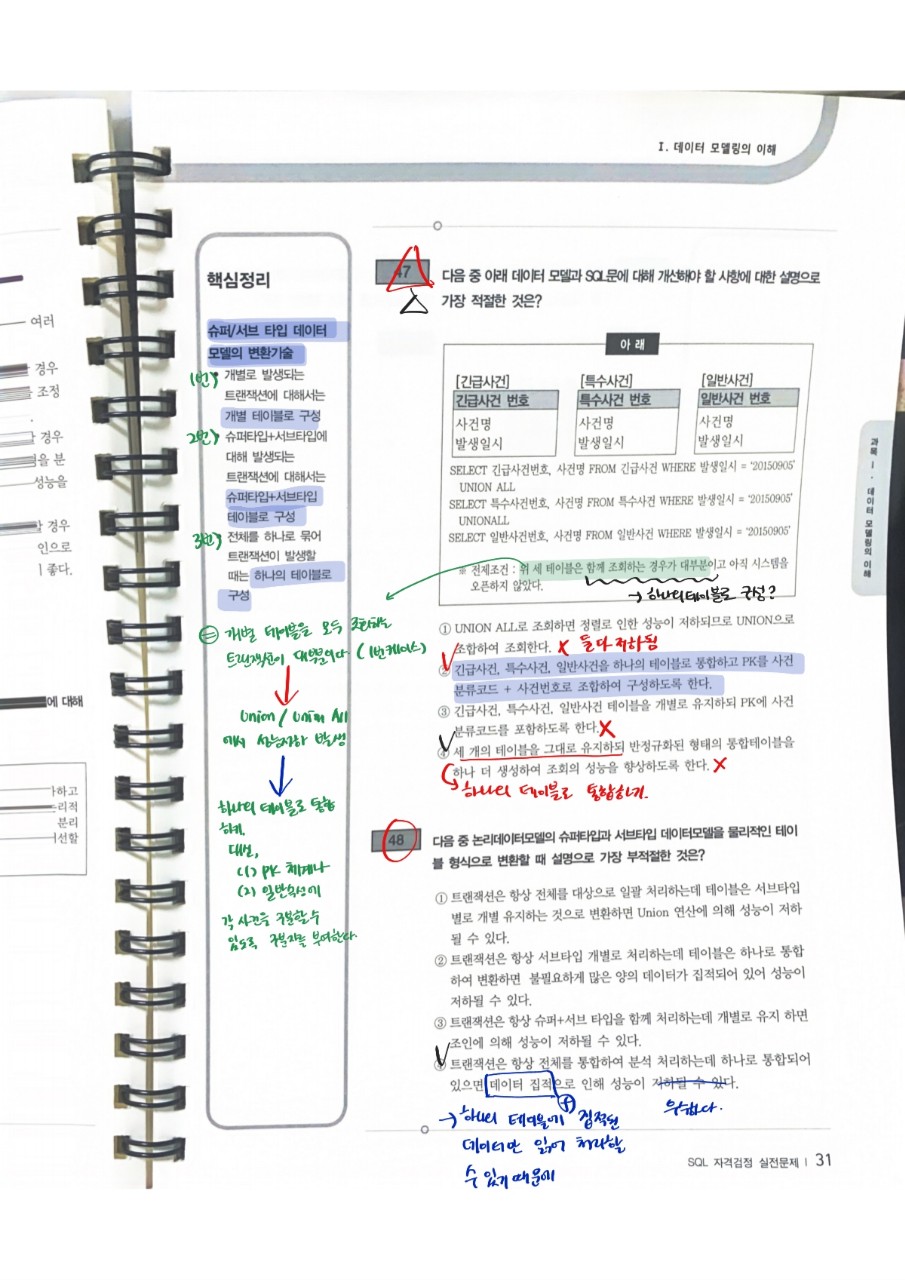 I. 데이터 모델링의 이해
여러
경우
조정
경우
을 분
성능을
경우
인으로
좋다.
에 대해
하고
리적
분리
선할
핵심정리
슈퍼/서브 타입 데이터
모델의 변환기술
1번) 개별로 발생되는
트랜잭션에 대해서는
개별 테이블로 구성
2번) 슈퍼타입+서브타입에
대해 발생되는
트랜잭션에 대해서는
슈퍼타입+서브타입
테이블로 구성
3번) 전체를 하나로 묶어
트랜잭션이 발생할
때는 하나의 테이블로
구성
= 개별 테이블을 모두 조회하는
트랜잭션이 대부분이다 (1번케이스)
Union / Union All
에서 성능저하 발생
하나의 테이블로 통합
하기.
대신,
(1) PK 체계나
(2) 일반속성에
각 사건을 구분할 수
있도록 구분자를 부여한다.
47
다음 중 아래 데이터 모델과 SQL문에 대해 개선해야 할 사항에 대한 설명으로
가장 적절한 것은?
아 래
[긴급사건] [특수사건] [일반사건]
긴급사건 번호 특수사건 번호 일반사건 번호
사건명 사건명 사건명
발생일시 발생일시 발생일시
SELECT 긴급사건번호, 사건명 FROM 긴급사건 WHERE 발생일시 = '20150905'
UNION ALL
SELECT 특수사건번호, 사건명 FROM 특수사건 WHERE 발생일시 = '20150905'
UNIONALL
SELECT 일반사건번호, 사건명 FROM 일반사건 WHERE 발생일시 = '20150905'
※ 전제조건 : 위 세 테이블은 함께 조회하는 경우가 대부분이고 아직 시스템을
오픈하지 않았다.
→ 하나의 테이블로 구성?
① UNION ALL로 조회하면 정렬로 인한 성능이 저하되므로 UNION으로
조합하여 조회한다. X 둘다 저하됨
② 긴급사건, 특수사건, 일반사건을 하나의 테이블로 통합하고 PK를 사건
분류코드 + 사건번호로 조합하여 구성하도록 한다.
③ 긴급사건, 특수사건, 일반사건 테이블을 개별로 유지하되 PK에 사건
분류코드를 포함하도록 한다. X
④ 세 개의 테이블을 그대로 유지하되 반정규화된 형태의 통합테이블을
하나 더 생성하여 조회의 성능을 향상하도록 한다. X
→ 하나의 테이블로 통합하기.
48
다음 중 논리데이터모델의 슈퍼타입과 서브타입 데이터모델을 물리적인 테이
블 형식으로 변환할 때 설명으로 가장 부적절한 것은?
① 트랜잭션은 항상 전체를 대상으로 일괄 처리하는데 테이블은 서브타입
별로 개별 유지하는 것으로 변환하면 Union 연산에 의해 성능이 저하
될 수 있다.
② 트랜잭션은 항상 서브타입 개별로 처리하는데 테이블은 하나로 통합
하여 변환하면 불필요하게 많은 양의 데이터가 집적되어 있어 성능이
저하될 수 있다.
③ 트랜잭션은 항상 슈퍼+서브 타입을 함께 처리하는데 개별로 유지 하면
조인에 의해 성능이 저하될 수 있다.
④ 트랜잭션은 항상 전체를 통합하여 분석 처리하는데 하나로 통합되어
있으면 데이터 집적으로 인해 성능이 저하될 수 있다.
우수하다.
→ 하나의 테이블에 집적된
데이터만 읽어 처리할
수 있기 때문에
과목 I · 데이터 모델링의 이해
SQL 자격검정 실전문제 | 31